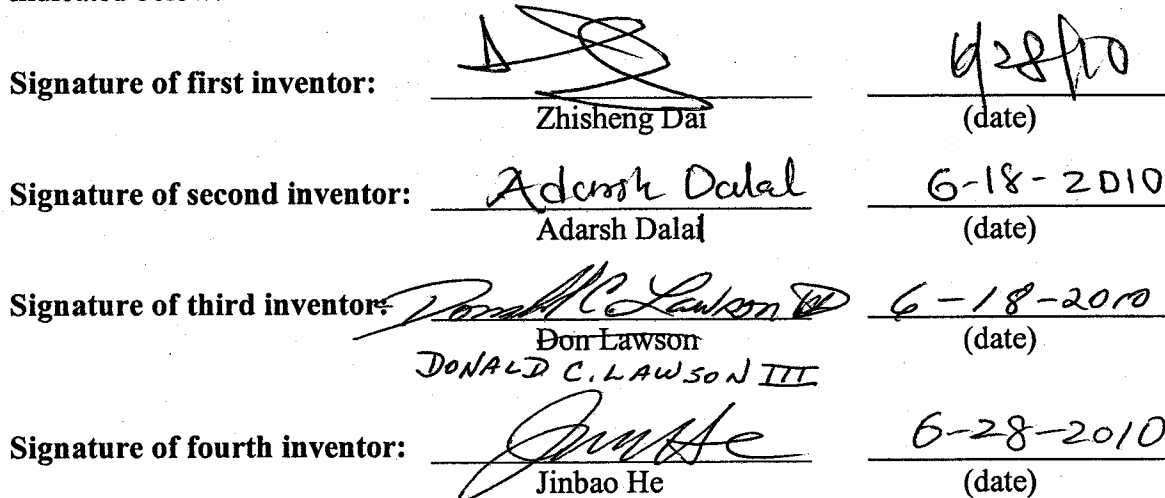 Signature of first inventor: 6/28/10
Zhisheng Dai (date)
Signature of second inventor: Adarsh Dalal 6-18-2010
Adarsh Dalal (date)
Signature of third inventor: Donald C. Lawson III 6-18-2010
Don Lawson (date)
DONALD C. LAWSON III
Signature of fourth inventor: Jinbao He 6-28-2010
Jinbao He (date)